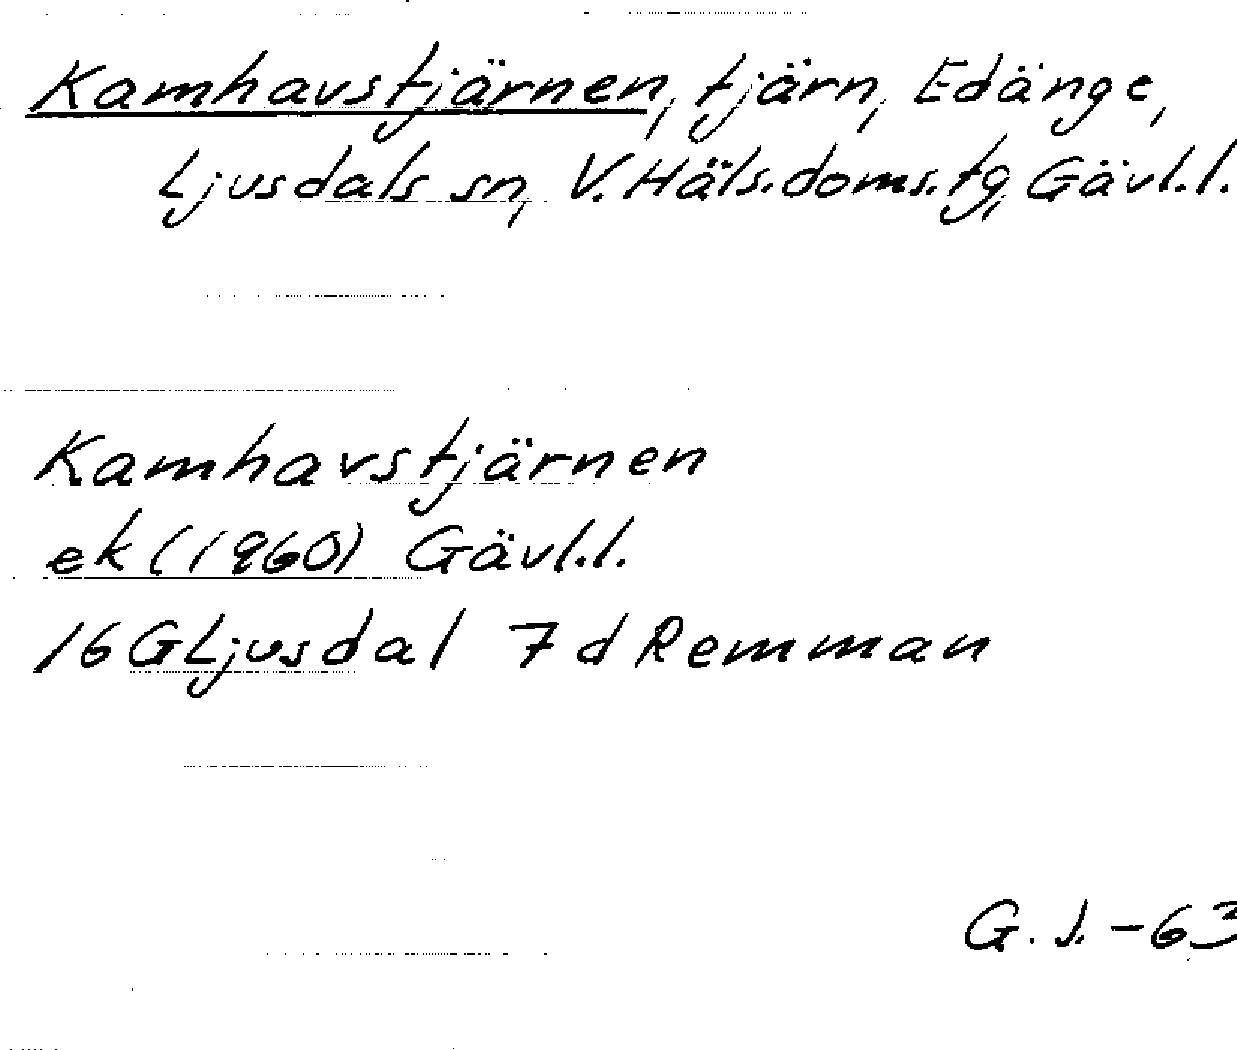 Kamhavstjärnen, tjärn, Edänge,
Ljusdals sn, V. Häls. doms. tg, Gävl.l.
Kamhavstjärnen
ek (1960) Gävl.l.
16 G Ljusdal 7 d Remman
G. J. -63